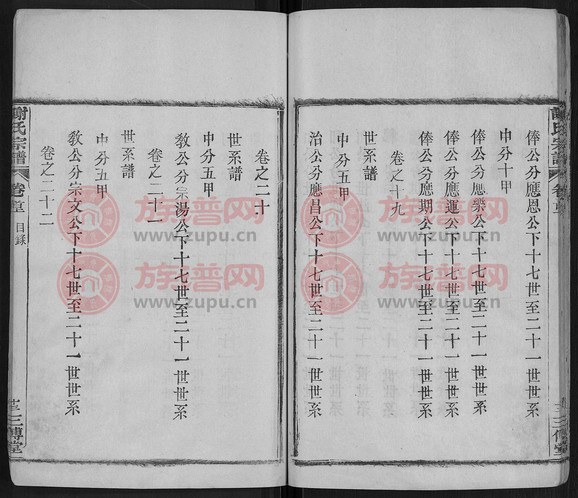 謝氏宗譜
俸公分應恩公下十七世至二十一世世系
中分十甲
俸公分應樂公下十七世至二十一世世系
俸公分應運公下十七世至二十一世世系
俸公分應期公下十七世至二十一世世系
卷之十九
世系譜
中分五甲
治公分應昌公下十七世至二十一世世系
卷之二十
世系譜
中分五甲
教公分宗湯公下十七世至二十一世世系
卷之二十一
世系譜
中分五甲
教公分宗文公下十七世至二十一世世系
卷之二十二
謝氏宗譜
目錄
三傳堂
族普网
www.zupu.cn
族普网
www.zupu.cn
族普网
www.zupu.cn
族普网
www.zupu.cn